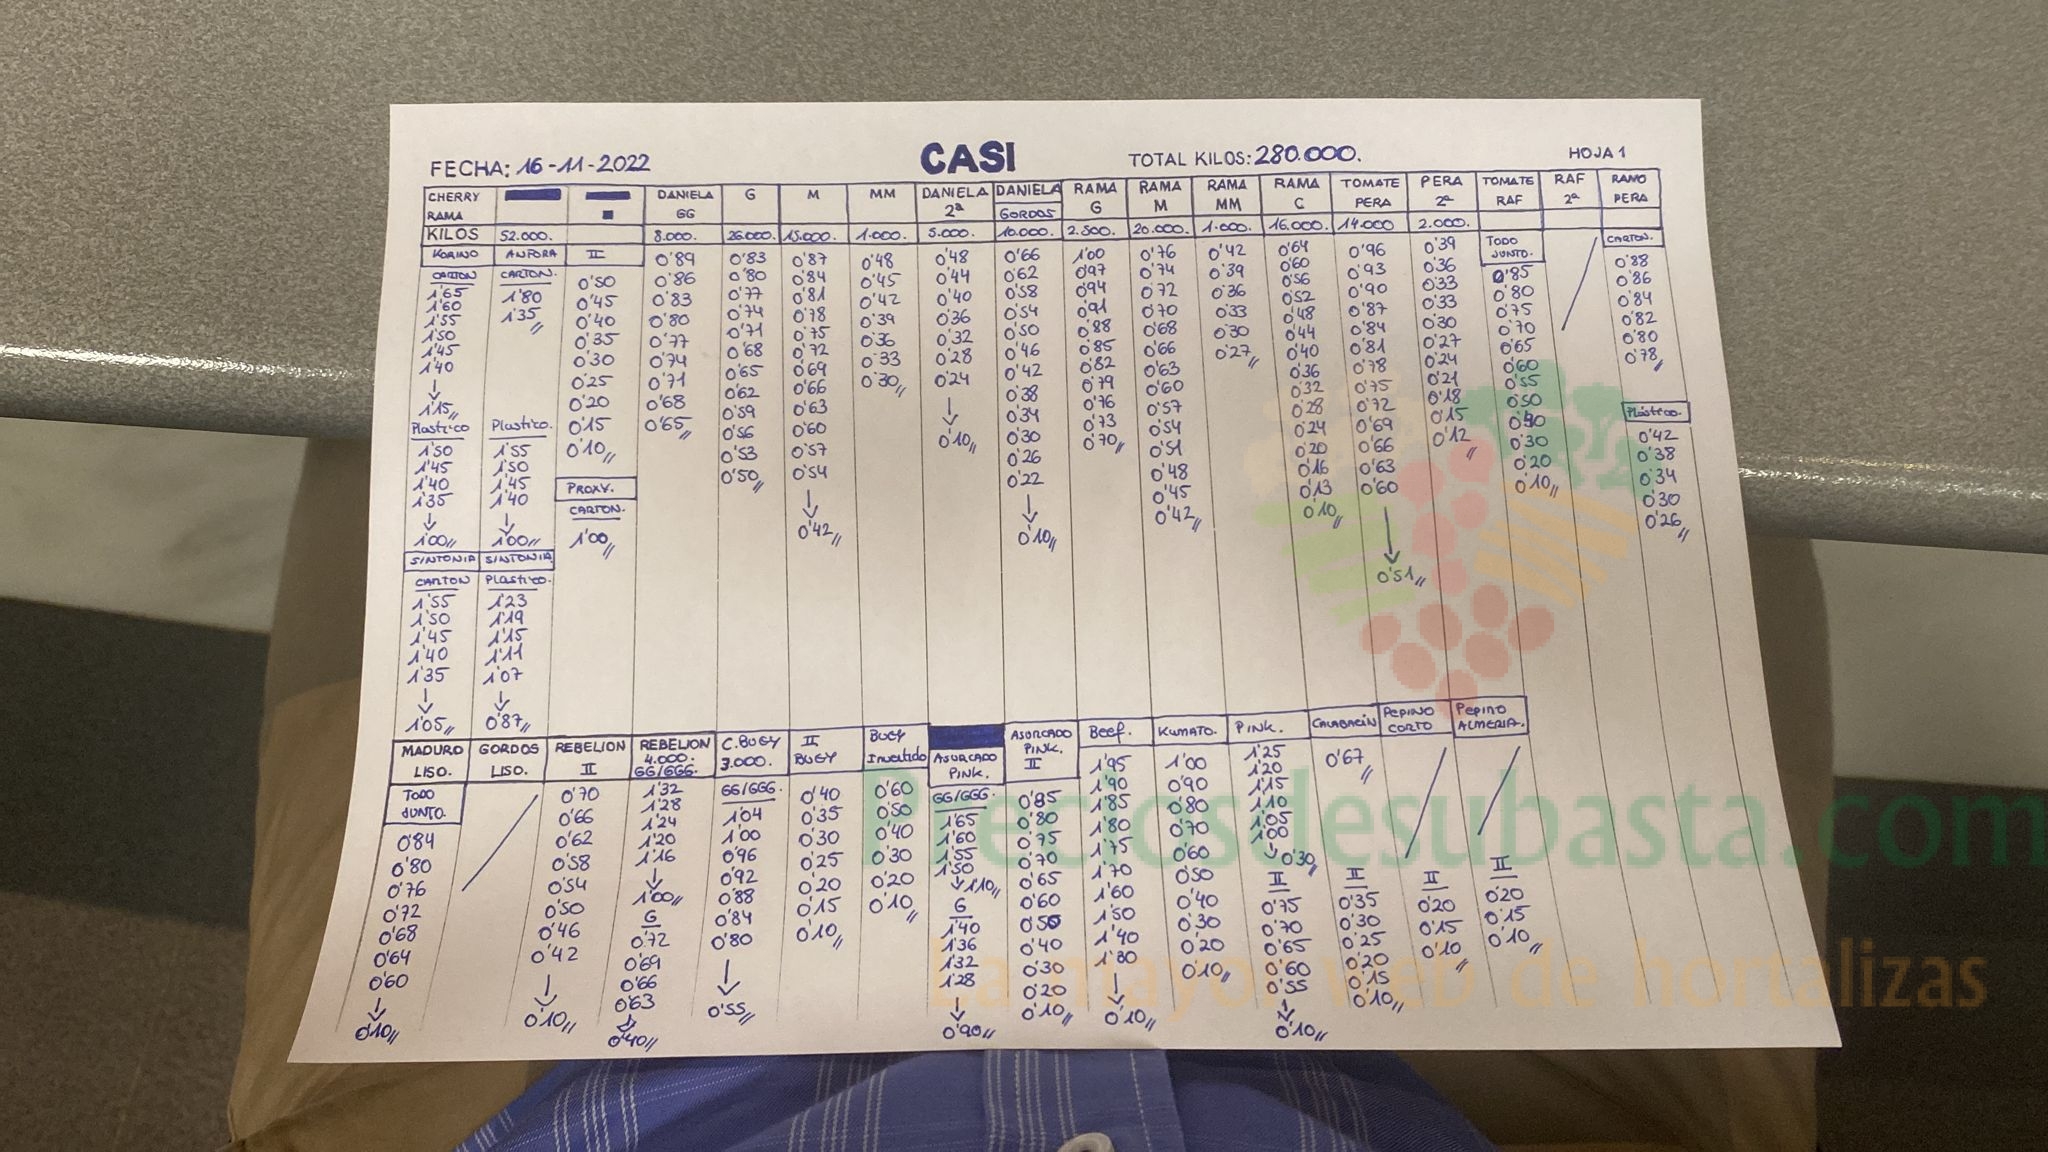 FECHA: 16-11-2022 CASI TOTAL KILOS: 280.000. HOJA 1
CHERRY RAMA
KILOS 52.000.
KORINO
CARTON
1'65
1'60
1'55
1'50
1'45
1'40
↓
1'15,,
Plastico
1'50
1'45
1'40
1'35
↓
1'00,,
SINTONIA
CARTON
1'55
1'50
1'45
1'40
1'35
↓
1'05,,
ANFORA
CARTON.
1'80
1'35
,,
Plastico.
1'55
1'50
1'45
1'40
↓
1'00,,
SINTONIA
Plastico.
1'23
1'19
1'15
1'11
1'07
↓
0'87,,
II
0'50
0'45
0'40
0'35
0'30
0'25
0'20
0'15
0'10,,
PROXY.
CARTON.
1'00,,
DANIELA
GG
8.000.
0'89
0'86
0'83
0'80
0'77
0'74
0'71
0'68
0'65,,
G
26.000.
0'83
0'80
0'77
0'74
0'71
0'68
0'65
0'62
0'59
0'56
0'53
0'50,,
M
15.000.
0'87
0'84
0'81
0'78
0'75
0'72
0'69
0'66
0'63
0'60
0'57
0'54
↓
0'42,,
MM
1.000.
0'48
0'45
0'42
0'39
0'36
0'33
0'30,,
DANIELA
2ª
5.000.
0'48
0'44
0'40
0'36
0'32
0'28
0'24
↓
0'10,,
DANIELA
GORDOS
10.000.
0'66
0'62
0'58
0'54
0'50
0'46
0'42
0'38
0'34
0'30
0'26
0'22
↓
0'10,,
RAMA
G
2.500.
1'00
0'97
0'94
0'91
0'88
0'85
0'82
0'79
0'76
0'73
0'70,,
RAMA
M
20.000.
0'76
0'74
0'72
0'70
0'68
0'66
0'63
0'60
0'57
0'54
0'51
0'48
0'45
0'42,,
RAMA
MM
1.000.
0'42
0'39
0'36
0'33
0'30
0'27,,
RAMA
C
16.000.
0'64
0'60
0'56
0'52
0'48
0'44
0'40
0'36
0'32
0'28
0'24
0'20
0'16
0'13
0'10,,
TOMATE
PERA
14.000
0'96
0'93
0'90
0'87
0'84
0'81
0'78
0'75
0'72
0'69
0'66
0'63
0'60
↓
0'51,,
PERA
2ª
2.000.
0'39
0'36
0'33
0'33
0'30
0'27
0'24
0'21
0'18
0'15
0'12,,
TOMATE
RAF
TODO
JUNTO.
0'85
0'80
0'75
0'70
0'65
0'60
0'55
0'50
0'40
0'30
0'20
0'10,,
RAF
2ª
RAMO
PERA
CARTON.
0'88
0'86
0'84
0'82
0'80
0'78,,
Plástico.
0'42
0'38
0'34
0'30
0'26,,
MADURO
LISO.
TODO
JUNTO.
0'84
0'80
0'76
0'72
0'68
0'64
0'60
↓
0'10,,
GORDOS
LISO.
REBELION
II
0'70
0'66
0'62
0'58
0'54
0'50
0'46
0'42
↓
0'10,,
REBELION
4.000.
GG/GGG.
1'32
1'28
1'24
1'20
1'16
↓
1'00,,
G
0'72
0'69
0'66
0'63
↓
0'40,,
C.BUGY
3.000.
GG/GGG.
1'04
1'00
0'96
0'92
0'88
0'84
0'80
↓
0'55,,
II
BUGY
0'40
0'35
0'30
0'25
0'20
0'15
0'10,,
BUGY
Invertido
0'60
0'50
0'40
0'30
0'20
0'10,,
ASURCADO
PINK.
GG/GGG.
1'65
1'60
1'55
1'50
↓1'10,,
G
1'40
1'36
1'32
1'28
↓
0'90,,
ASURCADO
PINK.
II
0'85
0'80
0'75
0'70
0'65
0'60
0'50
0'40
0'30
0'20
0'10,,
Beef.
1'95
1'90
1'85
1'80
1'75
1'70
1'60
1'50
1'40
1'30
↓
0'10,,
KUMATO.
1'00
0'90
0'80
0'70
0'60
0'50
0'40
0'30
0'20
0'10,,
PINK.
1'25
1'20
1'15
1'10
1'05
1'00
↓0'30,,
II
0'75
0'70
0'65
0'60
0'55
↓
0'10,,
CALABACIN
0'67
,,
II
0'35
0'30
0'25
0'20
0'15
0'10,,
PEPINO
CORTO
II
0'20
0'15
0'10,,
PEPINO
ALMERIA.
II
0'20
0'15
0'10,,
Preciosdesubasta.com
La mayor web de hortalizas